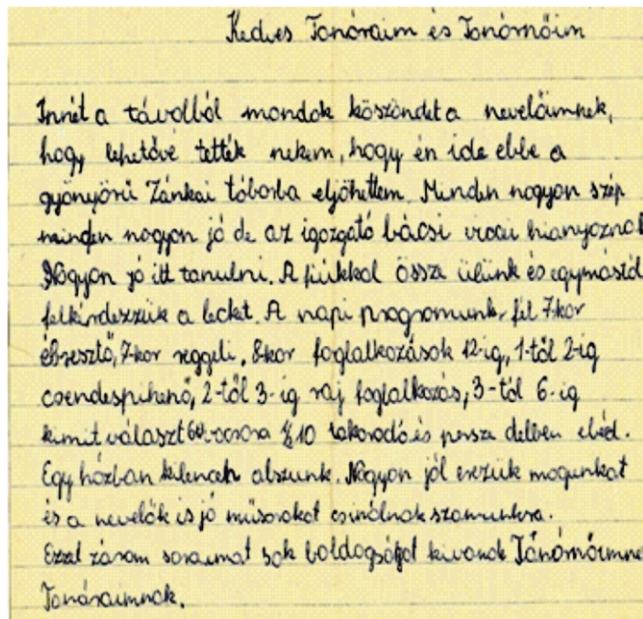 Kedves Tanáraim és Tanárnőim
Innét a távolból mondok köszöndet a nevelőimnek,
hogy lehetővé tették nekem, hogy én ide ebbe a
gyönyörű Zánkai táborba eljöhettem. Minden nagyon szép
minden nagyon jó de az igozgató bácsi viccei hianyoznak
Nagyon jó itt tanulni. A fiúkkal össze ülünk és egymástól
felkérdezzük a lecket. A napi programunk, fél 7-kor
ébresztő, 7-kor reggeli, 8-kor foglalkozások 12-ig, 1-től 2-ig
csendespihenő, 2-től 3-ig raj foglalkozás, 3-tól 6-ig
kimit választ vacsora 10 takarodó és persze delben ebéd.
Egy házban kilencen alszunk. Nagyon jól érezük magunkat
és a nevelők is jó műsorokat csinálnak számunkra.
Ezzel zárom soraimat sok boldogságot kivanok Tanárnőimne
Tanáraimnak.